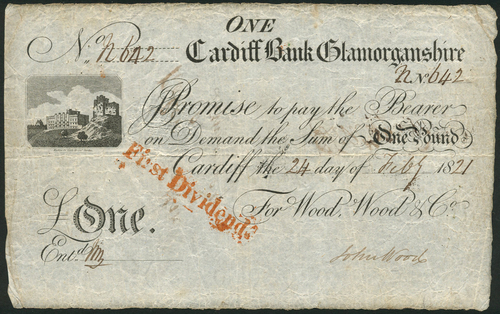 ONE
No. N 642 Cardiff Bank Glamorganshire
No. N 642
Promise to pay the Bearer
on Demand the Sum of One Pound
Cardiff the 24 day of Feby 1821
First Dividend.
£ One. For Wood, Wood & Co.
Entd.
John Wood